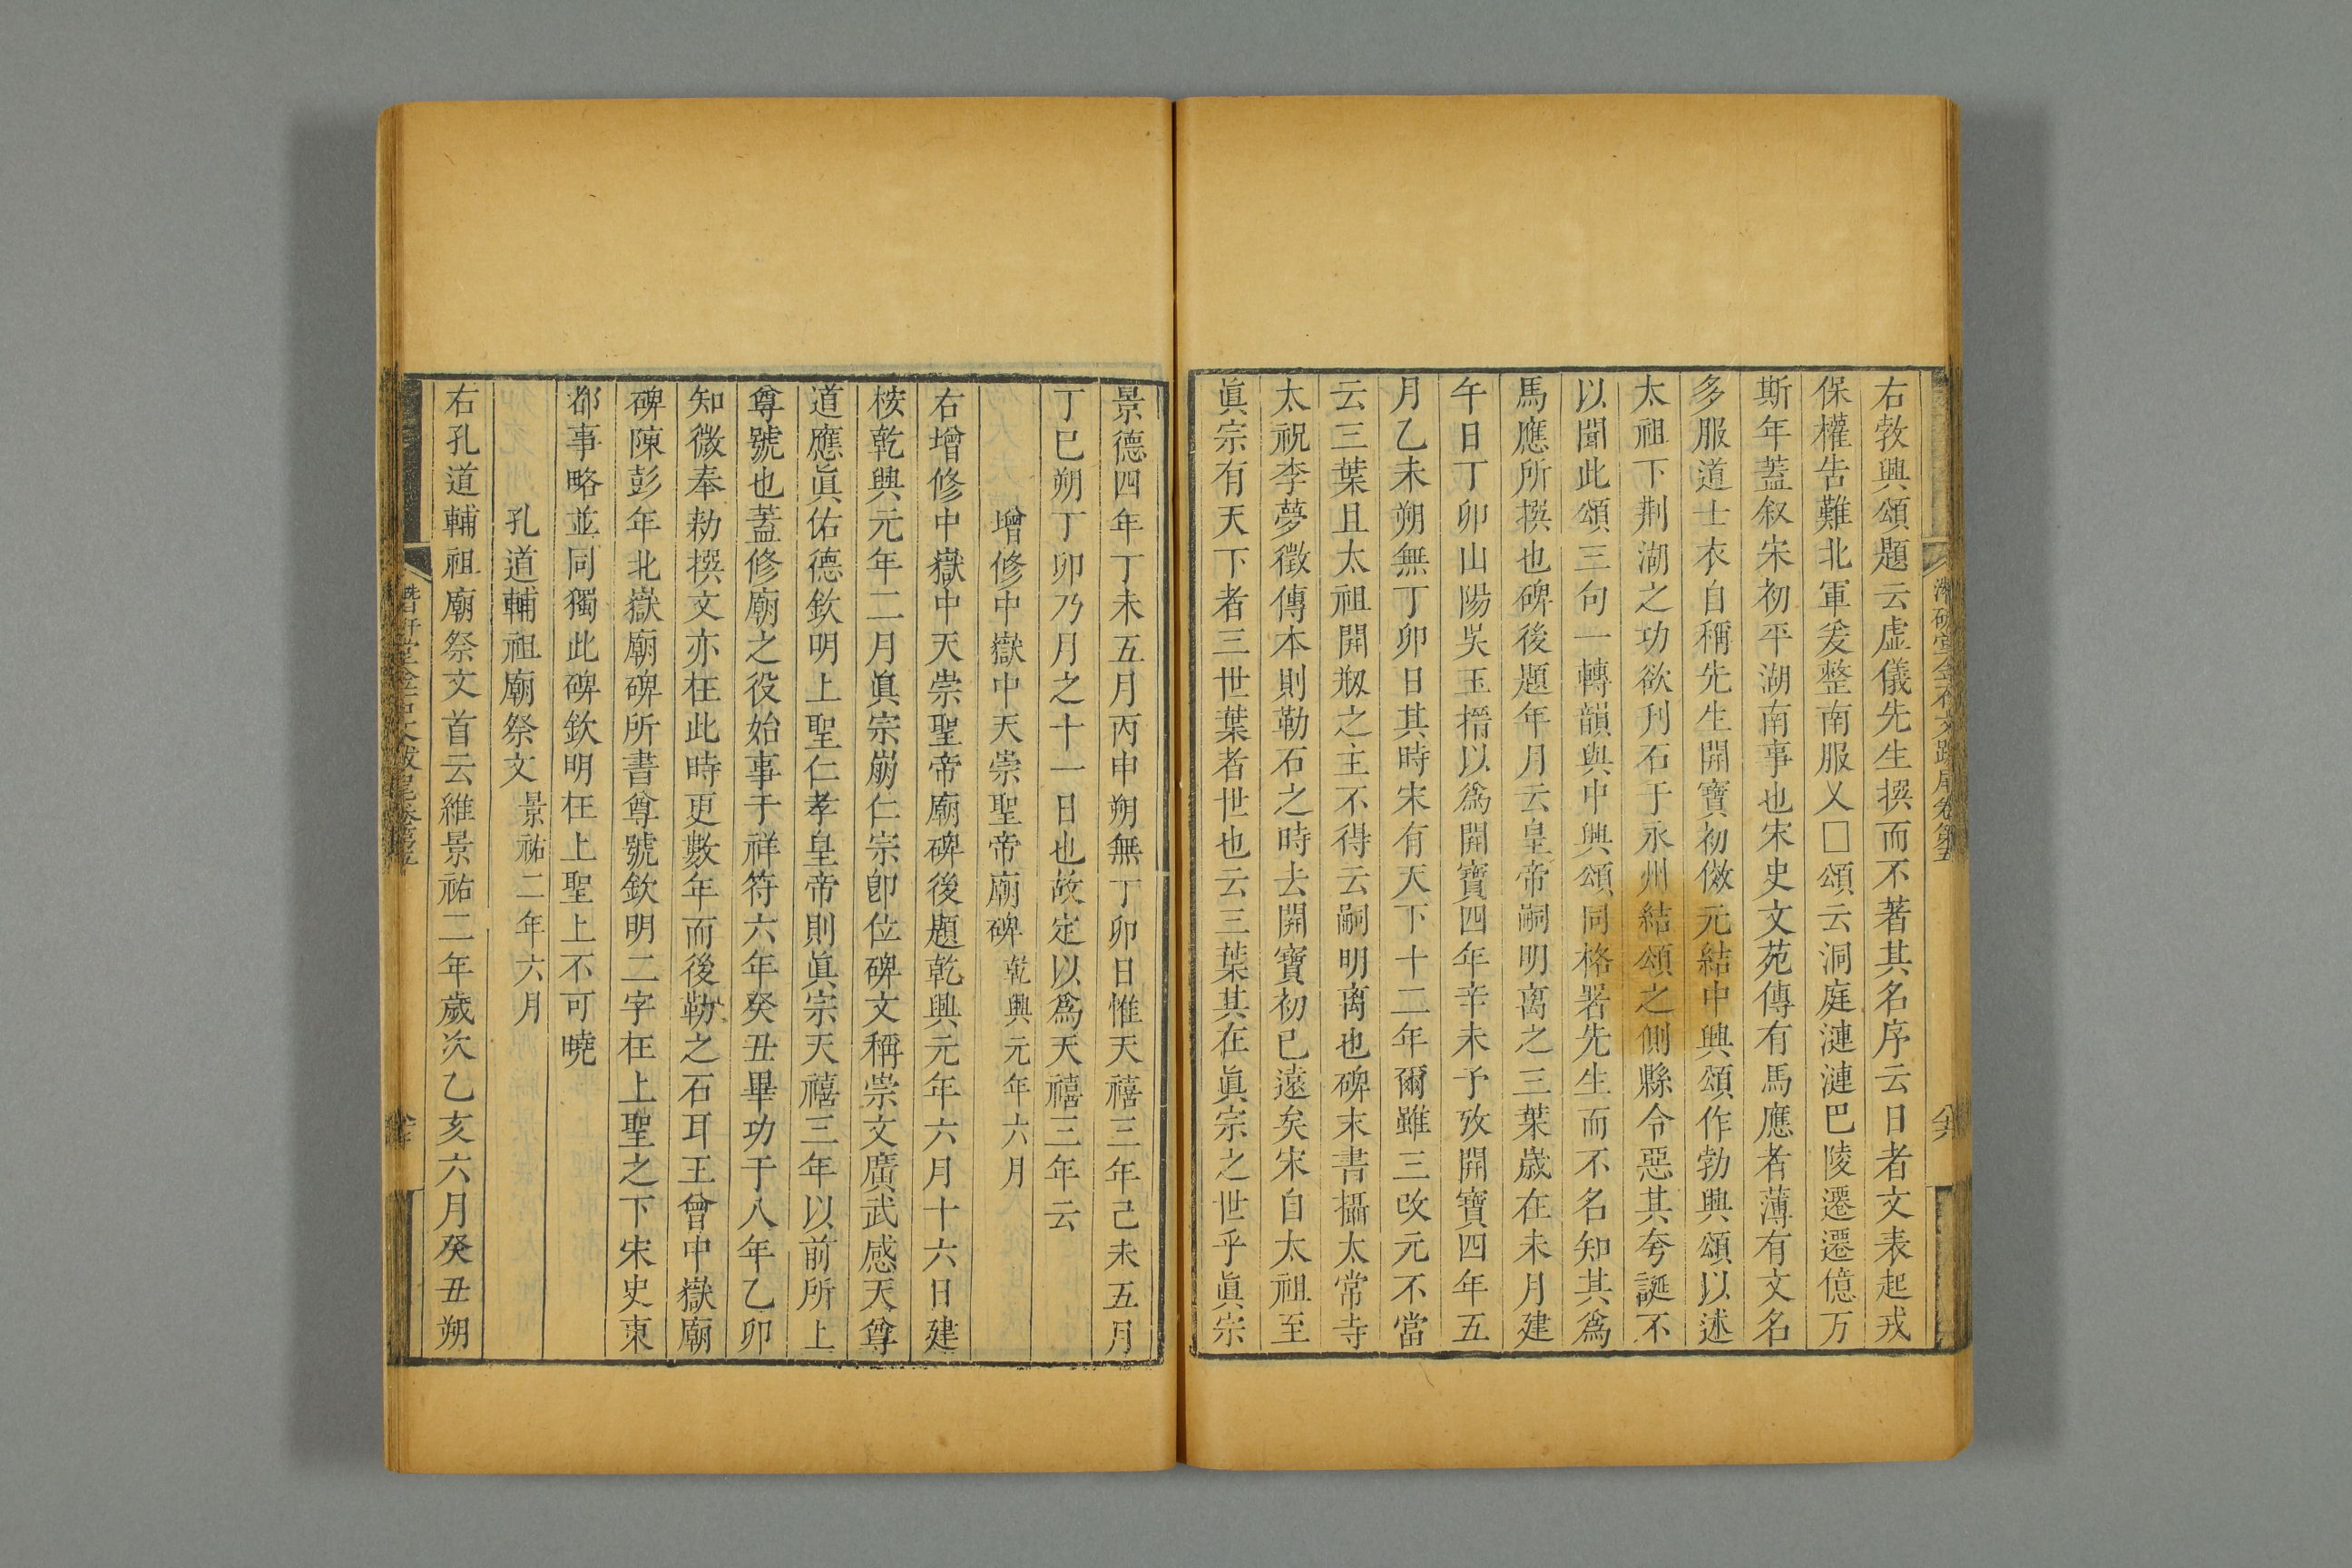 右敎興頌題云虛儀先生撰而不著其名序云日者文表起戎
保權告難北軍爰整南服乂□頌云洞庭漣漣巴陵遷遷億万
斯年蓋叙宋初平湖南事也宋史文苑傳有馬應者薄有文名
多服道士衣自稱先生開寶初倣元結中興頌作勃興頌以述
太祖下荆湖之功欲刋石于永州結頌之側縣令惡其夸誕不
以聞此頌三句一轉韻與中興頌同格署先生而不名知其爲
馬應所撰也碑後題年月云皇帝嗣明离之三葉歲在未月建
午日丁卯山陽吳玉搢以爲開寶四年辛未予攷開寶四年五
月乙未朔無丁卯日其時宋有天下十二年爾雖三改元不當
云三葉且太祖開刱之主不得云嗣明离也碑末書攝太常寺
太祝李夢徵傳本則勒石之時去開寶初已遠矣宋自太祖至
眞宗有天下者三世葉者世也云三葉其在眞宗之世乎眞宗
景德四年丁未五月丙申朔無丁卯日惟天禧三年己未五月
丁巳朔丁卯乃月之十一日也故定以爲天禧三年云
增修中嶽中天崇聖帝廟碑 乾興元年六月
右增修中嶽中天崇聖帝廟碑後題乾興元年六月十六日建
桉乾興元年二月眞宗崩仁宗卽位碑文稱崇文廣武感天尊
道應眞佑德欽明上聖仁孝皇帝則眞宗天禧三年以前所上
尊號也蓋修廟之役始事于祥符六年癸丑畢功于八年乙卯
知微奉勑撰文亦在此時更數年而後勒之石耳王曾中嶽廟
碑陳彭年北嶽廟碑所書尊號欽明二字在上聖之下宋史東
都事略並同獨此碑欽明在上聖上不可曉
孔道輔祖廟祭文 景祐二年六月
右孔道輔祖廟祭文首云維景祐二年歲次乙亥六月癸丑朔